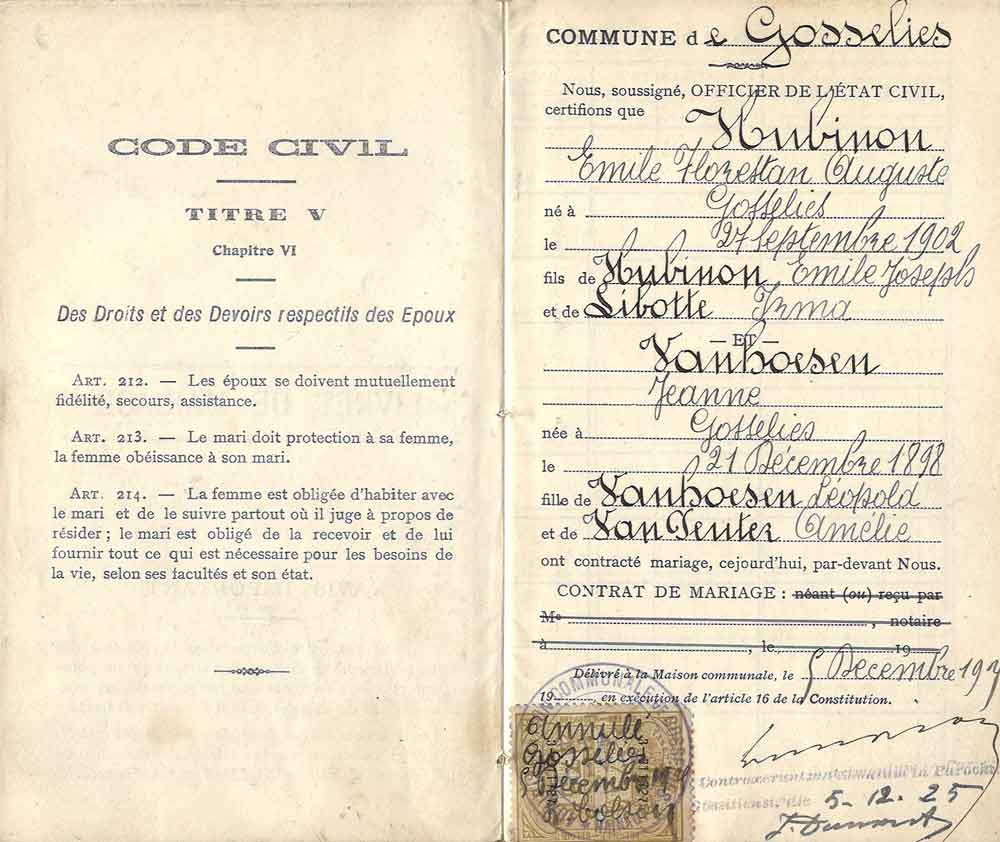 CODE CIVIL
TITRE V
Chapitre VI
Des Droits et des Devoirs respectifs des Epoux
ART. 212. — Les époux se doivent mutuellement
fidélité, secours, assistance.
ART. 213. — Le mari doit protection à sa femme,
la femme obéissance à son mari.
ART. 214. — La femme est obligée d'habiter avec
le mari et de le suivre partout où il juge à propos de
résider ; le mari est obligé de la recevoir et de lui
fournir tout ce qui est nécessaire pour les besoins de
la vie, selon ses facultés et son état.
COMMUNE de Gosselies
Nous, soussigné, OFFICIER DE L'ÉTAT CIVIL,
certifions que Hubinon
Emile Florestan Auguste
né à Gosselies
le 27 Septembre 1902
fils de Hubinon Emile Joseph
et de Libotte Irma
— ET —
Vanhoesen
Jeanne
née à Gosselies
le 21 Décembre 1898
fille de Vanhoesen Léopold
et de Van Penter Amélie
ont contracté mariage, cejourd'hui, par-devant Nous.
CONTRAT DE MARIAGE : néant (ou) reçu par
Me , notaire
à , le 19
Délivré à la Maison communale, le 5 Décembre
19 , en exécution de l'article 16 de la Constitution.
COMMUNALE DE
Annulé
Gosselies
5 Décembre
5-12.25